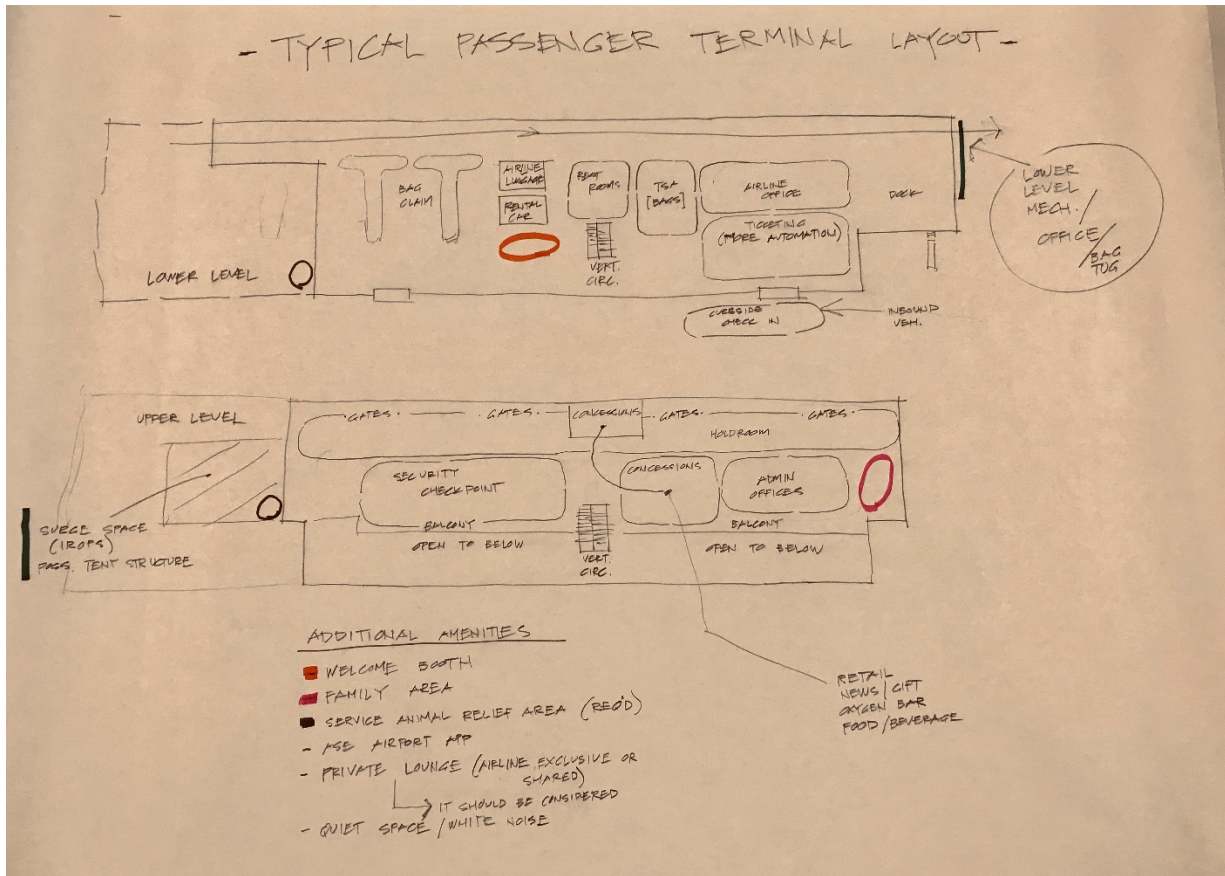 - TYPICAL PASSENGER TERMINAL LAYOUT -
BAG
CLAIM
AIRLINE
LUGGAGE
RENTAL
CAR
REST
ROOMS
VERT.
CIRC.
TSA
[BAGS]
AIRLINE
OFFICE
TICKETING
(MORE AUTOMATION)
DOCK
LOWER
LEVEL
MECH./
OFFICE/
BAG
TUG
LOWER LEVEL
CURBSIDE
CHECK IN
INBOUND
VEH.
UPPER LEVEL
GATES. - GATES. CONCESSIONS - GATES. - GATES.
HOLDROOM
SECURITY
CHECKPOINT
CONCESSIONS
ADMIN
OFFICES
BALCONY
OPEN TO BELOW
VERT.
CIRC.
BALCONY
OPEN TO BELOW
SURGE SPACE
(IROPS)
POSS. TENT STRUCTURE
ADDITIONAL AMENITIES
WELCOME BOOTH
FAMILY AREA
SERVICE ANIMAL RELIEF AREA (REQ'D)
- ASE AIRPORT APP
- PRIVATE LOUNGE (AIRLINE EXCLUSIVE OR
SHARED)
IT SHOULD BE CONSIDERED
- QUIET SPACE / WHITE NOISE
RETAIL
NEWS / GIFT
OXYGEN BAR
FOOD / BEVERAGE